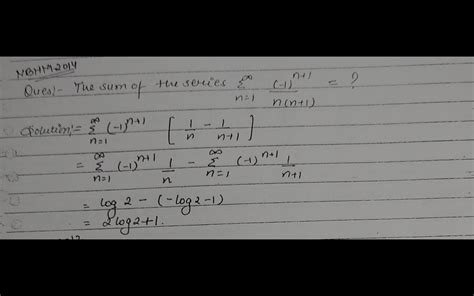 NBHM2014
Ques:- The sum of the series ∞∑n=1 (-1)^n+1 / n(n+1) = ?
Solution:- ∞∑n=1 (-1)^n+1 [1/n - 1/n+1]
= ∞∑n=1 (-1)^n+1 1/n - ∞∑n=1 (-1)^n+1 1/n+1
= log 2 - (-log2-1)
= 2log2+1.